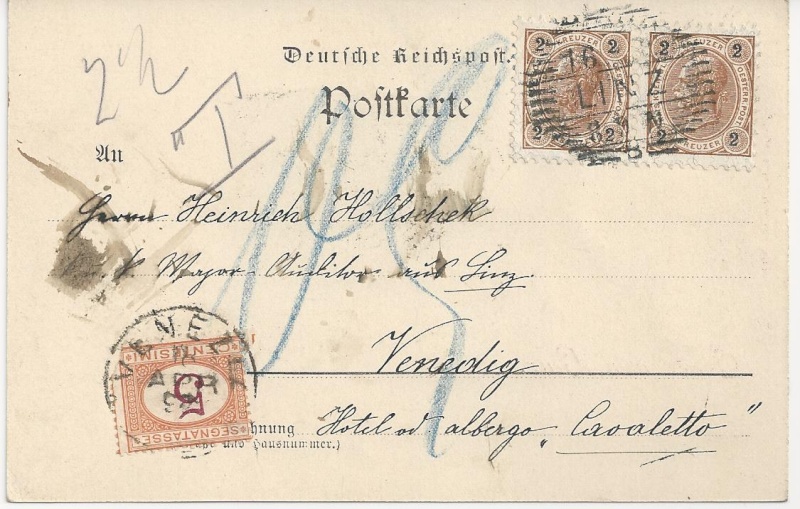 2 KREUZER 2
OESTERR. POST
2 2
KREUZER
2 KREUZER 2
OESTERR. POST
2 2
KREUZER
16
LINZ
Deutsche Reichspost.
Postkarte
An
Herrn Heinrich Hollschek
k. k. Major-Auditor aus Linz.
Venedig
Hotel od albergo „Cavaletto"
hnung
und Hausnummer.)
VENEZIA
CENTESIMI
5
SEGNATASSE